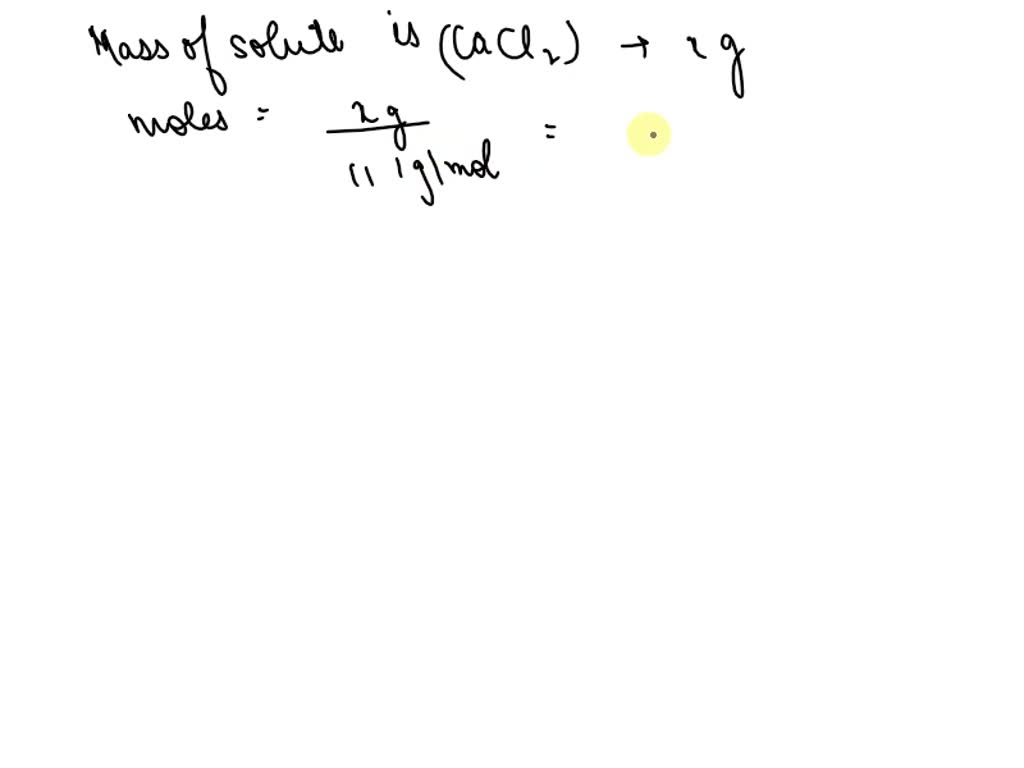 Mass of solute is (CaCl₂) → 2 g
moles = 2 g
111 g/mol =